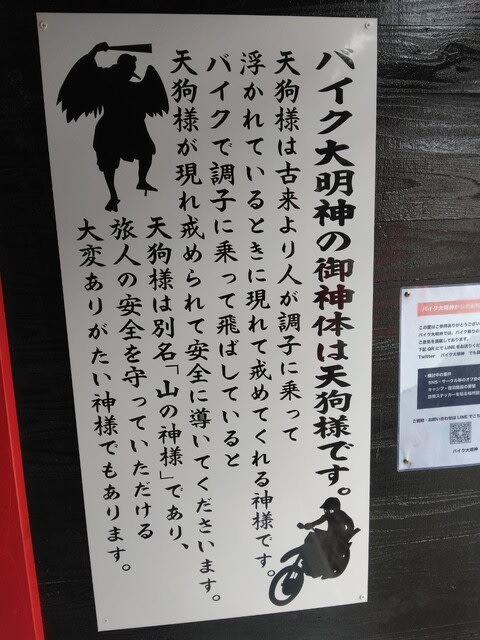 バイク大明神の御神体は天狗様です。
天狗様は古来より人が調子に乗って
浮かれているときに現れて戒めてくれる神様です。
バイクで調子に乗って飛ばしていると
天狗様が現れ戒められて安全に導いてくださいます。
天狗様は別名「山の神様」であり、
旅人の安全を守っていただける
大変ありがたい神様でもあります。
バイク大明神から
この度はご参拝ありがとうござい
下記QRにてLINEを
Twitter バイク大明神
・検討中の事件
バイク大明神